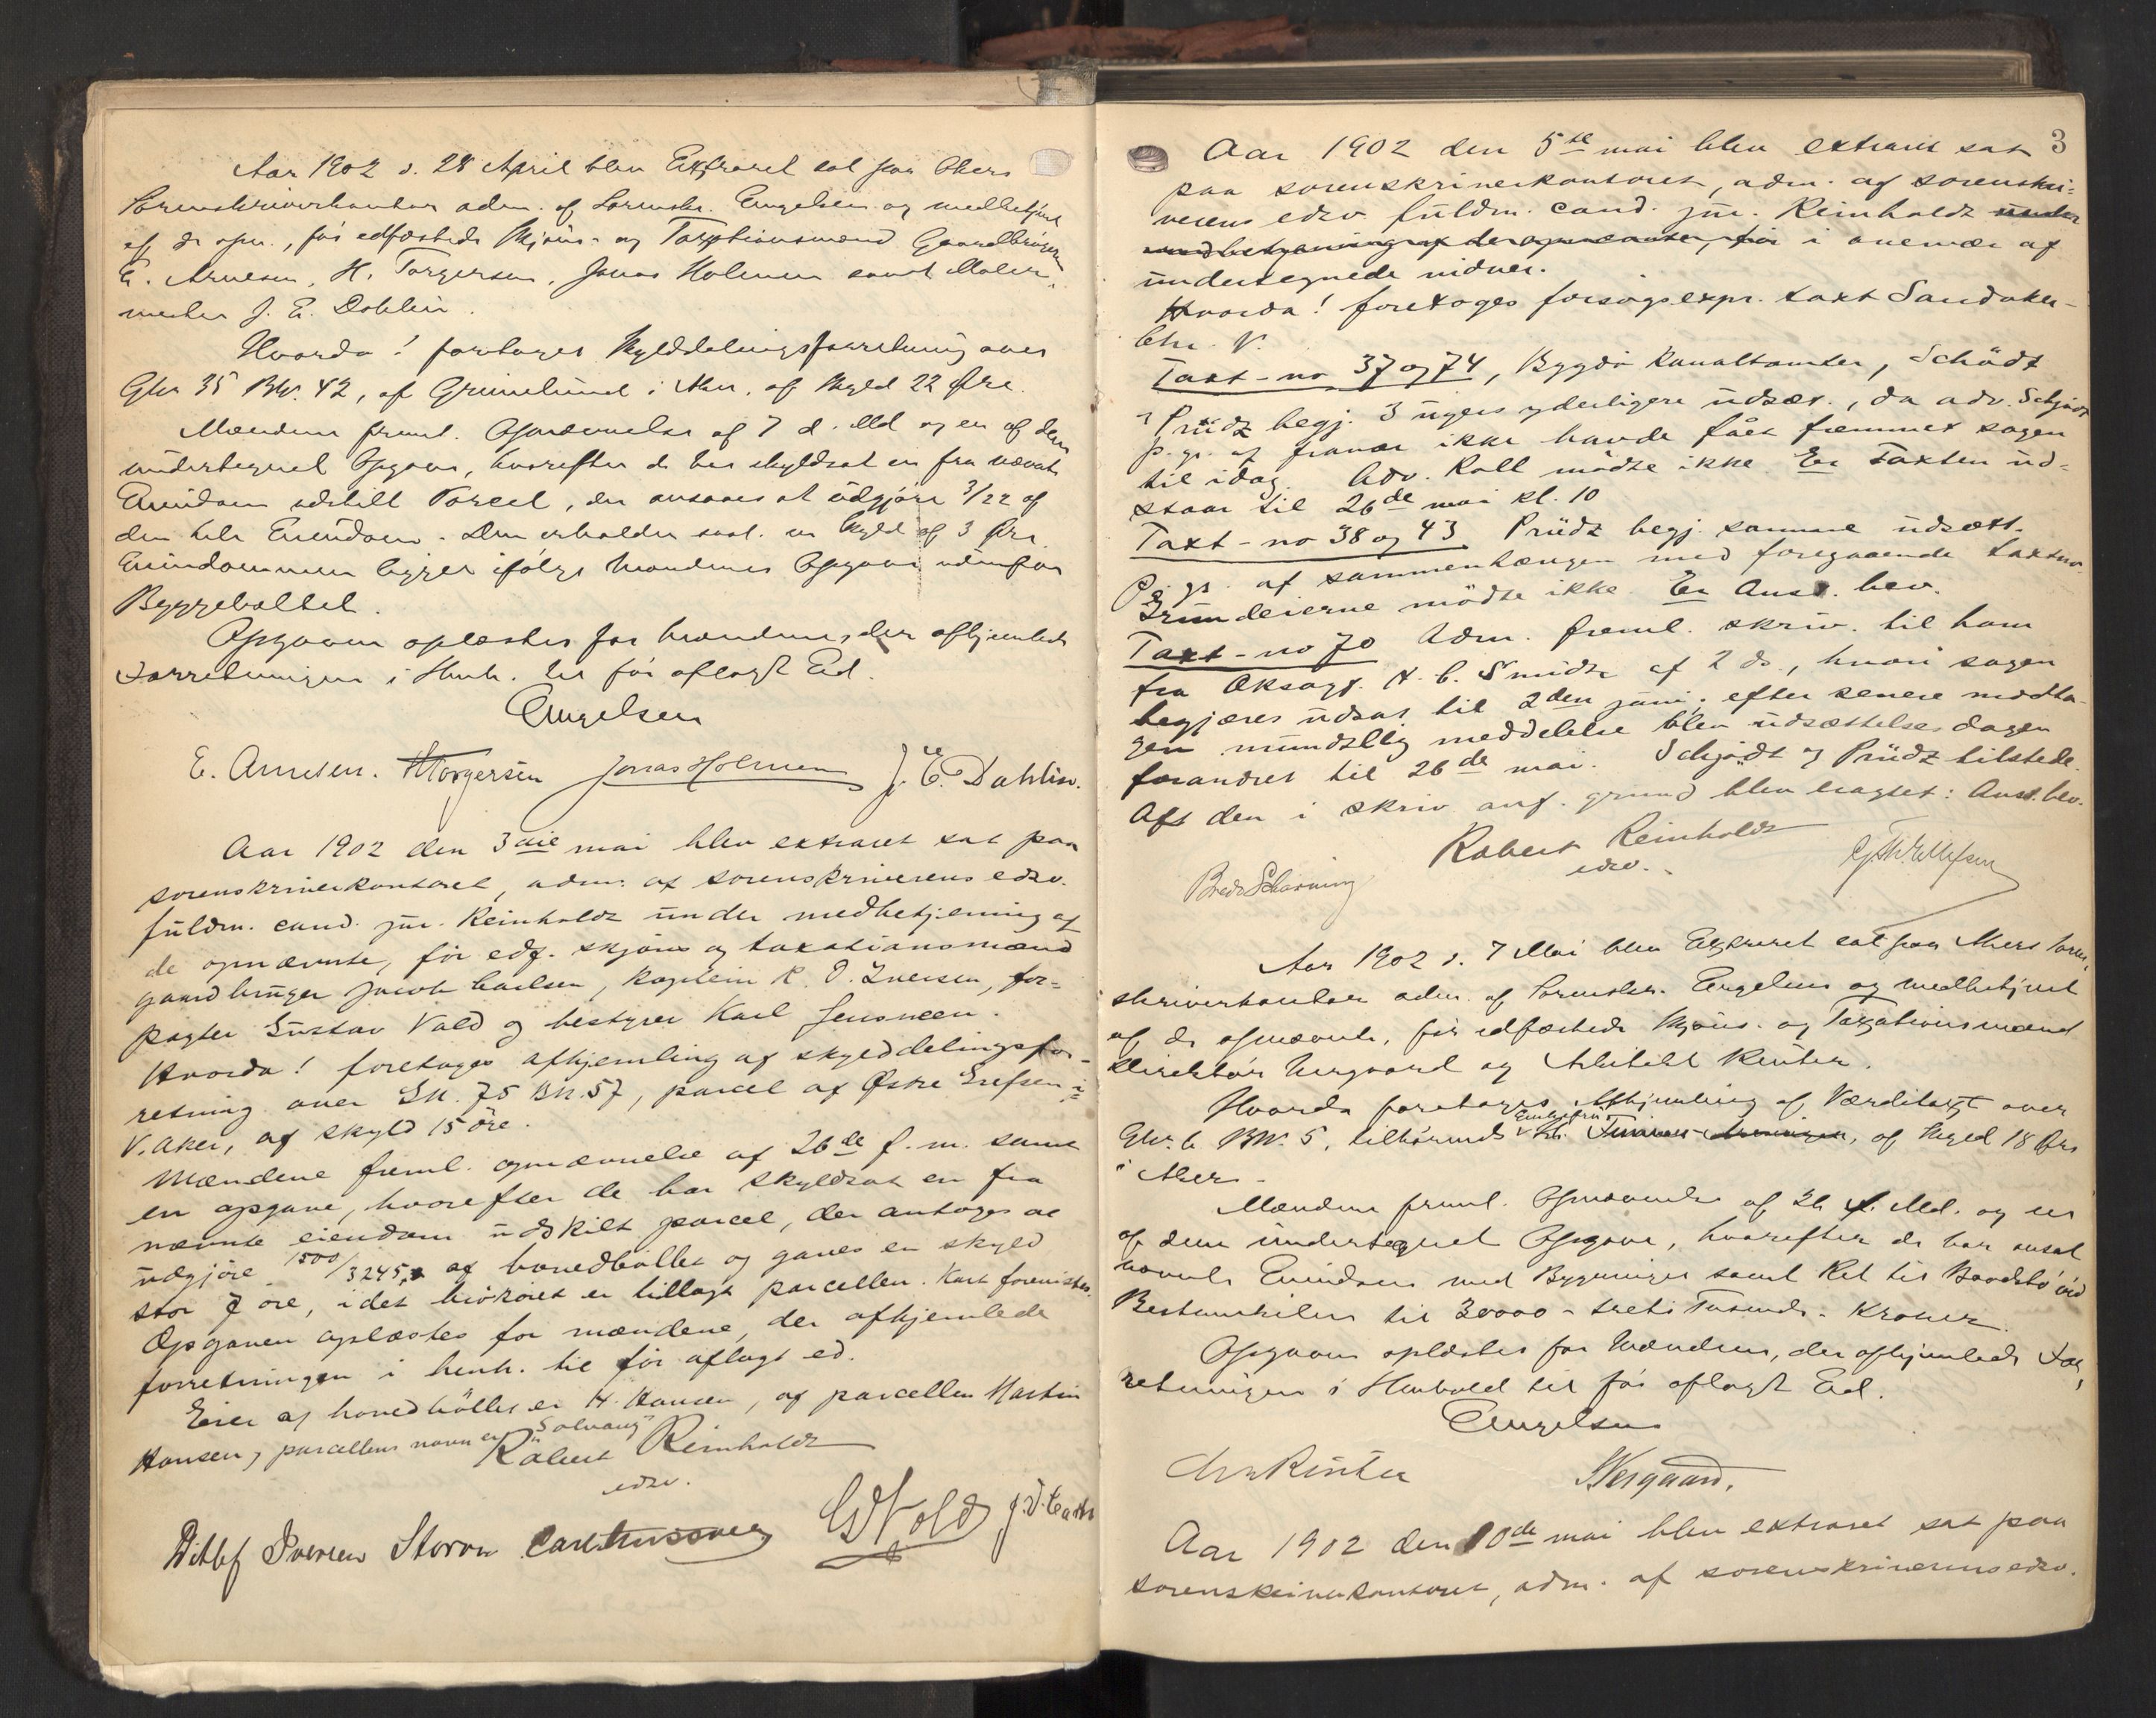 Aar 1902 d. 28 April blev Extraret sat paa Akers
Sorenskriverkontor adm. af Sorenskr. Engelsen og medbetjent
af de opn., før edfæstede Skjøns- og Taxtionsmænd Gaardbruger
E. Arnesen, H. Torgersen, Jonas Holmen samt Maler-
mester J. E. Dahlin.
Hvorda! foretoges Skylddelingsforretning over
Gbr 35 BNr. 42, af Grimelund i Aker, af Skyld 22 Øre.
Mændene freml. Opnævnelse af 7 d. Md og en af dem
undertegnet Opgave, hvorefter de har skyldsat en fra nævnte
Eiendom udskilt Parcel, der ansaaes at udgjøre 3/22 af
den hele Eiendom. Den erholder saal. en Skyld af 3 Øre.
Eiendommen ligger ifølge Mændenes Opgave udenfor
Byggebeltet.
Opgaven oplæstes for Mændene, der afhjemlede
Forretningen i Henh. til før aflagt Ed.
Engelsen
E. Arnesen. H Torgersen Jonas Holmen J. E. Dahlin.
Aar 1902 den 3die mai blev extraret sat paa
sorenskriverkontoret, adm. af sorenskriverens edsv.
fuldm. cand. jur. Reinholdt under medbetjening af
de opnævnte, før edf. skjøns og taxationsmænd
gaardbruger Jacob Carlsen, kaptein R. D. Iversen, for-
pagter Gustav Vold og bestyrer Karl
Hvorda! foretoges afhjemling af skylddelingsfor-
retning over GN. 75 BN. 57, parcel af Østre Grefsen i
V. Aker, af skyld 15 øre.
Mændene freml. opnævnelse af 26de f. m. samt
en opgave, hvorefter de har skyldsat en fra
nævnte eiendom udskilt parcel, der antoges at
udgjøre 1500/3245,2 af hovedbøllet og gaves en skyld
stor 7 øre, idet er tillagt parcellen. Kart forevistes.
Opgaven oplæstes for mændene, der afhjemlede
forretningen i henh. til før aflagt ed.
Eier af hovedbøllet er H. Hansen, af parcellen Martin
Hansen, parcellens navn er "Solvang"
Robert Reinholdt
edsv.
Ditlef Iversen Storm GVold J. V. Carls

3
Aar 1902 den 5te mai blev extraret sat
paa sorenskriverkontoret, adm. af sorenskri-
verens edsv. fuldm. cand. jur. Reinholdt under
medbetjening af de opnævnte, før i overvær af
undertegnede vidner.
Hvorda! foretoges forsøgsexpr. taxt Sandaker-
Chr. V.
Taxt-no 37 og 74, Bygdø Kanaltomter, Schødt
& Prüdz begj. 3 ugers yderligere udsæt., da adv. Schjødt
p. gr. af fravær ikke havde fået fremmet sagen
til idag. Adv. Roll mødte ikke. En Taxten ud-
staar til 26de mai kl. 10
Taxt-no 38 og 43 Prüdz begj. samme udsætt.
p. gr. af sammenhængen med foregaaende taxtno.
Grundeierne mødte ikke. En Ans. bev.
Taxt-no 70 Adm. freml. skriv. til ham
fra Oksagf. H. C. Smidt af 2 ds., hvori sagen
begjæres udsat til 2den juni; efter senere modta-
gen mundtlig meddelelse blev udsættelses dagen
forandret til 26de mai. Schjødt og Prüdz tilstede.
Aft den i skriv anf. grund blev eragtet: Ans. bev.
Robert Reinholdt
edsv.
Brede Scharning
Aar 1902 d. 7 Mai blev Extraret sat paa Akers Soren-
skriverkontor adm. af Sorenskr. Engelsen og medbetjent
af de opnævnte, før edfæstede Skjøns- og Taxationsmænd
Direktør Nergaard og Arkitekt Reuter.
Hvorda foretoges Afhjemling af Værditaxt over
Gbr. 6 BNr. 5, tilhørende Enkefru, af Skyld 18 Øre
i Aker.
Mændene freml. Opnævnelse af 26 f. Md. og en
af dem undertegnet Opgave, hvorefter de har ansat
nævnte Eiendom med Bygninger samt Ret til Baadstø ved
Bestumkilen til 30000 - treti Tusinde - Kroner
Opgaven oplæstes for Mændene, der afhjemlede For-
retningen i Henhold til før aflagt Ed.
Engelsen
Nergaard.
Aar 1902 den 10de mai blev extraret sat paa
sorenskriverkontoret, adm. af sorenskriverens edsv.